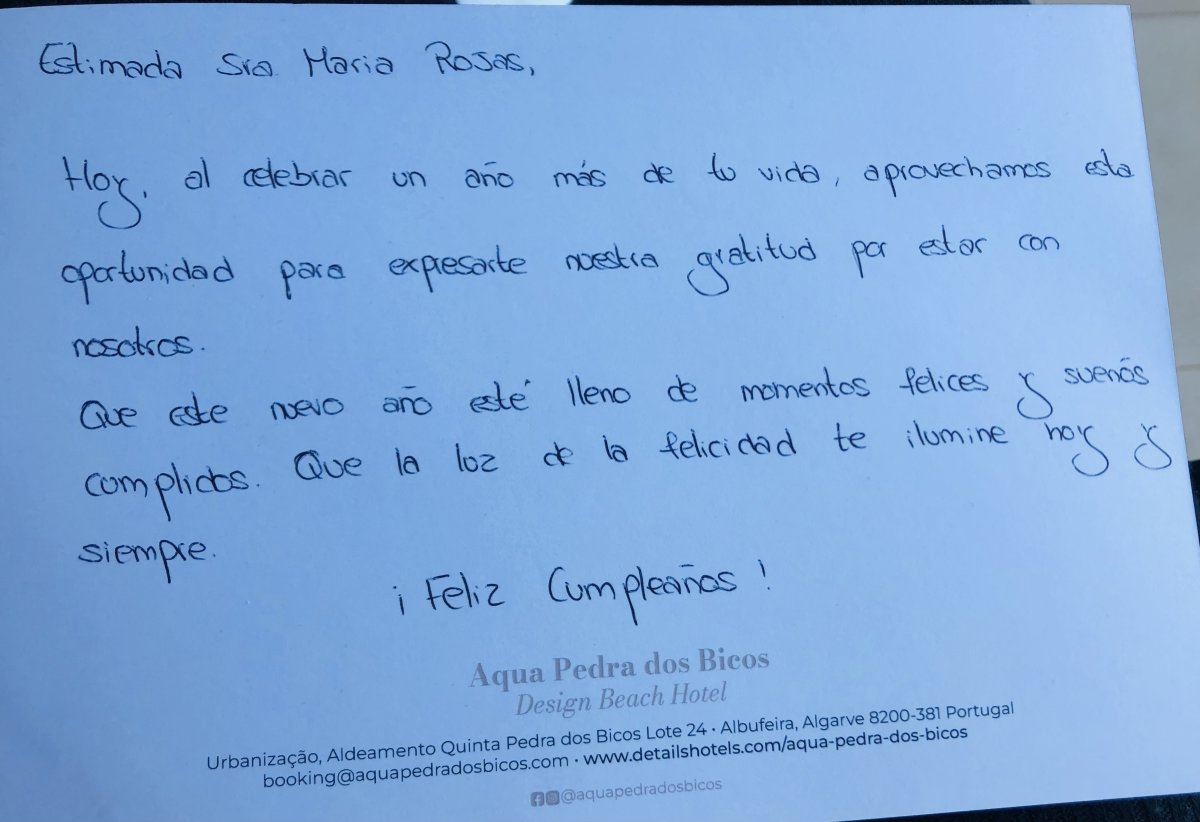 Estimada Sra Maria Rosas,
Hoy, al celebrar un año más de tu vida, aprovechamos esta
oportunidad para expresarte nuestra gratitud por estar con
nosotros.
Que este nuevo año esté lleno de momentos felices y sueños
cumplidos. Que la luz de la felicidad te ilumine hoy y
siempre.
¡Feliz Cumpleaños!
Aqua Pedra dos Bicos
Design Beach Hotel
Urbanização, Aldeamento Quinta Pedra dos Bicos Lote 24 · Albufeira, Algarve 8200-381 Portugal
booking@aquapedradosbicos.com · www.detailshotels.com/aqua-pedra-dos-bicos
@aquapedradosbicos